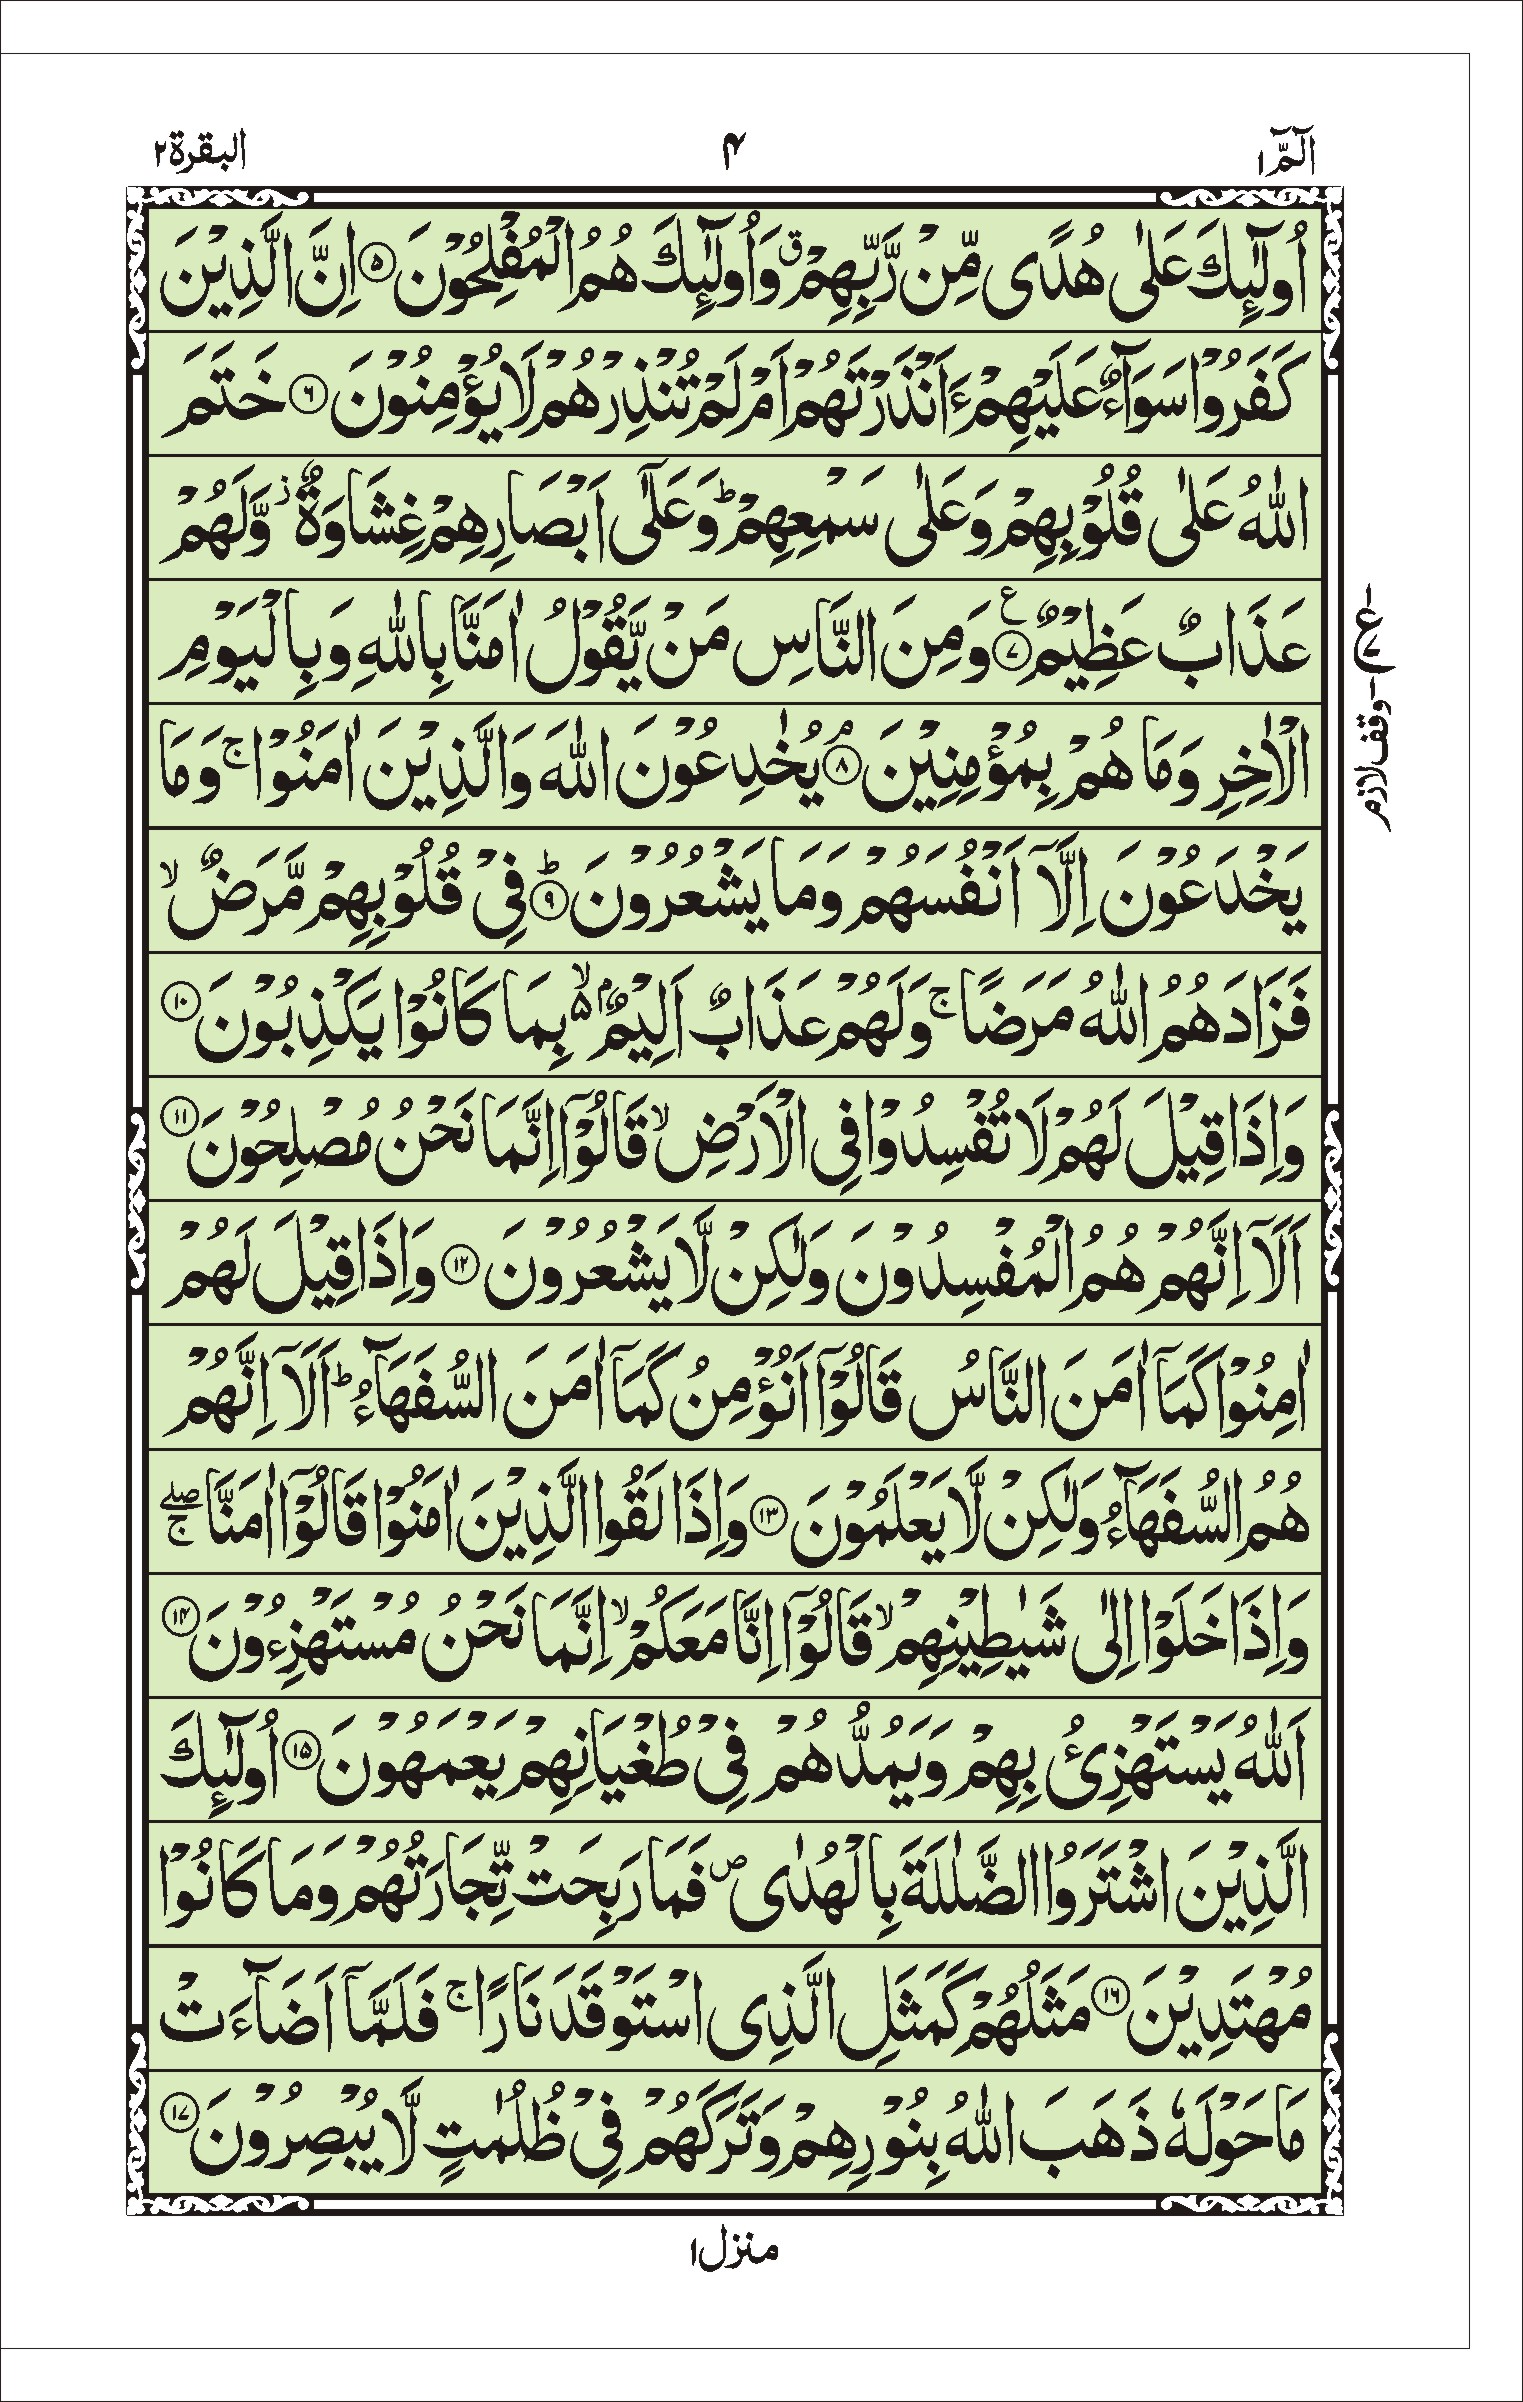 الٓمّٓ ۱
۴
البقرة ۲
اُولٰٓئِكَ عَلٰى هُدًى مِّنْ رَّبِّهِمْ ۗ وَاُولٰٓئِكَ هُمُ الْمُفْلِحُوْنَ ۵ اِنَّ الَّذِيْنَ
كَفَرُوْا سَوَآءٌ عَلَيْهِمْ ءَاَنْذَرْتَهُمْ اَمْ لَمْ تُنْذِرْهُمْ لَا يُؤْمِنُوْنَ ۶ خَتَمَ
اللّٰهُ عَلٰى قُلُوْبِهِمْ وَعَلٰى سَمْعِهِمْ ؕ وَعَلٰٓى اَبْصَارِهِمْ غِشَاوَةٌ ز وَّلَهُمْ
عَذَابٌ عَظِيْمٌ ۷ ع وَمِنَ النَّاسِ مَنْ يَّقُوْلُ اٰمَنَّا بِاللّٰهِ وَبِالْيَوْمِ
الْاٰخِرِ وَمَا هُمْ بِمُؤْمِنِيْنَ ۘ ۸ يُخٰدِعُوْنَ اللّٰهَ وَالَّذِيْنَ اٰمَنُوْا ۚ وَمَا
يَخْدَعُوْنَ اِلَّآ اَنْفُسَهُمْ وَمَا يَشْعُرُوْنَ ؕ ۹ فِيْ قُلُوْبِهِمْ مَّرَضٌ ۙ
فَزَادَهُمُ اللّٰهُ مَرَضًا ۚ وَلَهُمْ عَذَابٌ اَلِيْمٌۢ ۙ۵ بِمَا كَانُوْا يَكْذِبُوْنَ ۱۰
وَاِذَا قِيْلَ لَهُمْ لَا تُفْسِدُوْا فِى الْاَرْضِ ۙ قَالُوْٓا اِنَّمَا نَحْنُ مُصْلِحُوْنَ ۱۱
اَلَآ اِنَّهُمْ هُمُ الْمُفْسِدُوْنَ وَلٰكِنْ لَّا يَشْعُرُوْنَ ۱۲ وَاِذَا قِيْلَ لَهُمْ
اٰمِنُوْا كَمَآ اٰمَنَ النَّاسُ قَالُوْٓا اَنُؤْمِنُ كَمَآ اٰمَنَ السُّفَهَآءُ ؕ اَلَآ اِنَّهُمْ
هُمُ السُّفَهَآءُ وَلٰكِنْ لَّا يَعْلَمُوْنَ ۱۳ وَاِذَا لَقُوا الَّذِيْنَ اٰمَنُوْا قَالُوْٓا اٰمَنَّا ۖۚ
وَاِذَا خَلَوْا اِلٰى شَيٰطِيْنِهِمْ ۙ قَالُوْٓا اِنَّا مَعَكُمْ ۙ اِنَّمَا نَحْنُ مُسْتَهْزِءُوْنَ ۱۴
اَللّٰهُ يَسْتَهْزِئُ بِهِمْ وَيَمُدُّهُمْ فِيْ طُغْيَانِهِمْ يَعْمَهُوْنَ ۱۵ اُولٰٓئِكَ
الَّذِيْنَ اشْتَرَوُا الضَّلٰلَةَ بِالْهُدٰى ص فَمَا رَبِحَتْ تِّجَارَتُهُمْ وَمَا كَانُوْا
مُهْتَدِيْنَ ۱۶ مَثَلُهُمْ كَمَثَلِ الَّذِى اسْتَوْقَدَ نَارًا ۚ فَلَمَّآ اَضَآءَتْ
مَا حَوْلَهٗ ذَهَبَ اللّٰهُ بِنُوْرِهِمْ وَتَرَكَهُمْ فِيْ ظُلُمٰتٍ لَّا يُبْصِرُوْنَ ۱۷
ع ۷
وقف لازم
منزل ۱